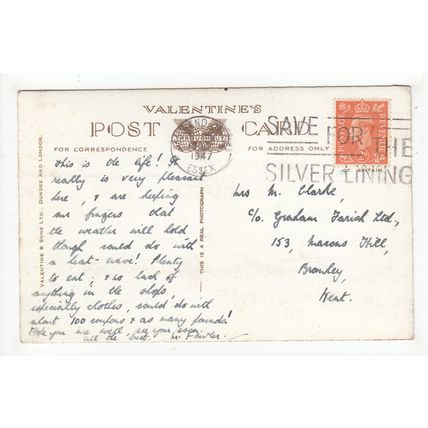 VALENTINE'S
POST CARD
FOR CORRESPONDENCE
FOR ADDRESS ONLY
1947
ESSEX
SAVE
FOR
THE
SILVER LINING
POSTAGE
REVENUE
VALENTINE & SONS LTD., DUNDEE AND LONDON.
THIS IS A REAL PHOTOGRAPH
This is the life! It
really is very pleasant
here, & are keeping
our fingers that
the weather will hold
though could do with
a heat-wave! Plenty
to eat, & no lack of
anything in the shops
especially clothes, could do with
about 100 coupons & as many pounds!
Hope you are well, see you soon.
all the best. M. Fowler.
Mrs M. Clarke,
C/o. Graham Farish Ltd.,
153, Masons Hill,
Bromley,
Kent.